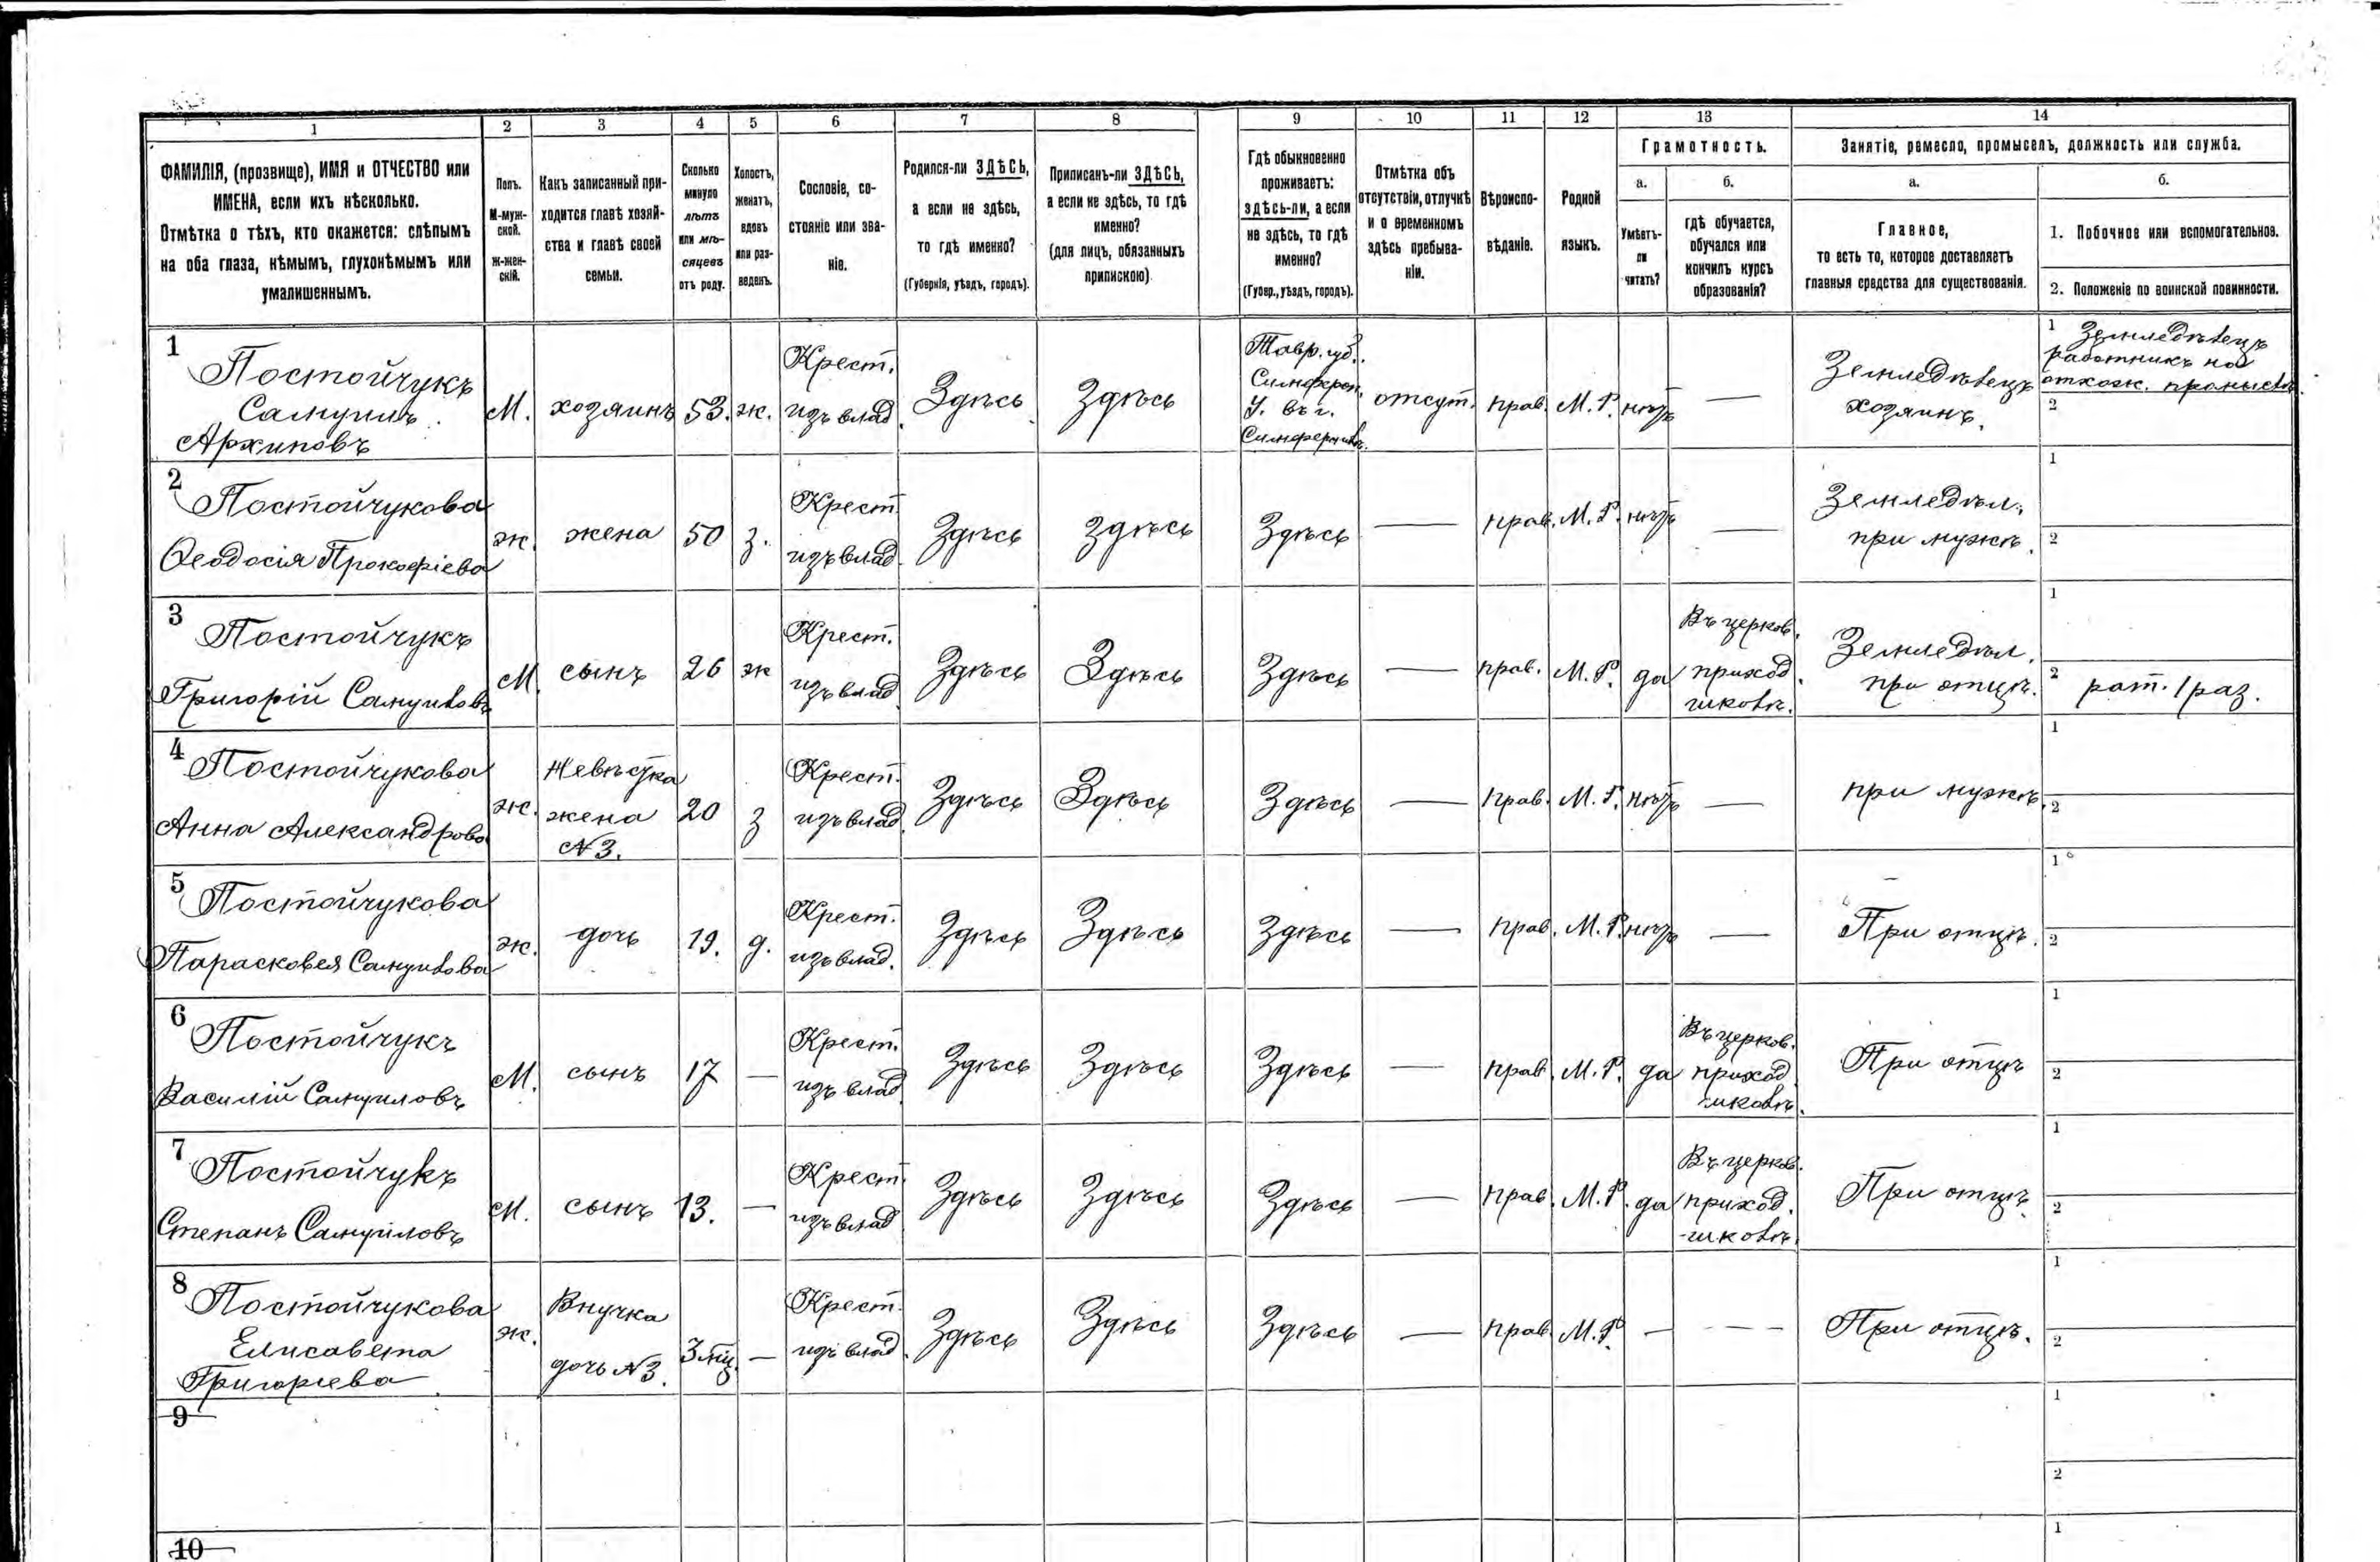 1 2 3 4 5 6 7 8 9 10 11 12 13 14
ФАМИЛІЯ, (прозвище), ИМЯ и ОТЧЕСТВО или
ИМЕНА, если ихъ нѣсколько.
Отмѣтка о тѣхъ, кто окажется: слѣпымъ
на оба глаза, нѣмымъ, глухонѣмымъ или
умалишеннымъ.
Полъ.
М-муж-
ской.
Ж-жен-
скій.
Какъ записанный при-
ходится главѣ хозяй-
ства и главѣ своей
семьи.
Сколько
минуло
лѣтъ
или мѣ-
сяцевъ
отъ роду.
Холостъ,
женатъ,
вдовъ
или раз-
веденъ.
Сословіе, со-
стояніе или зва-
ніе.
Родился-ли ЗДѢСЬ,
а если не здѣсь,
то гдѣ именно?
(Губернія, уѣздъ, городъ).
Приписанъ-ли ЗДѢСЬ,
а если не здѣсь, то гдѣ
именно?
(для лицъ, обязанныхъ
припискою)
Гдѣ обыкновенно
проживаетъ:
здѣсь-ли, а если
не здѣсь, то гдѣ
именно?
(Губер., уѣздъ, городъ).
Отмѣтка объ
отсутствіи, отлучкѣ
и о временномъ
здѣсь пребыва-
ніи.
Вѣроиспо-
вѣданіе.
Родной
языкъ.
Грамотность.
а.
Умѣетъ-
ли
читать?
б.
гдѣ обучается,
обучался или
кончилъ курсъ
образованія?
Занятіе, ремесло, промыселъ, должность или служба.
а.
Главное,
то есть то, которое доставляетъ
главныя средства для существованія.
б.
1. Побочное или вспомогательное.
2. Положеніе по воинской повинности.
1
Постойчукъ
Самуилъ
Архиповъ
М.
хозяинъ
53.
ж.
Крест.
изъ влад.
Здѣсь
Здѣсь
Тавр. губ.
Симфероп.
У. въ г.
Симферополѣ
отсут.
прав.
М. Р.
нѣтъ
—
Земледѣлецъ
хозяинъ.
1 Земледѣлецъ
работникъ на
отхож. промыслѣ.
2
2
Постойчукова
Ѳеодосія Прокофіева
ж.
жена
50
з.
Крест.
изъ влад.
Здѣсь
Здѣсь
Здѣсь
—
прав.
М. Р.
нѣтъ
—
Земледѣл.
при мужѣ.
1
2
3
Постойчукъ
Григорій Самуиловъ
М.
сынъ
26
ж
Крест.
изъ влад.
Здѣсь
Здѣсь
Здѣсь
—
прав.
М. Р.
да
Въ церков.
приход.
школѣ.
Земледѣл.
при отцѣ.
1
2 рат. 1 раз.
4
Постойчукова
Анна Александрова
ж.
Невѣстка
жена
№ 3.
20
з
Крест.
изъ влад.
Здѣсь
Здѣсь
Здѣсь
—
прав.
М. Р.
нѣтъ
—
при мужѣ.
1
2
5
Постойчукова
Парасковея Самуилова
ж.
дочь
19.
д.
Крест.
изъ влад.
Здѣсь
Здѣсь
Здѣсь
—
прав.
М. Р.
нѣтъ
—
При отцѣ.
1
2
6
Постойчукъ
Василій Самуиловъ
М.
сынъ
17
—
Крест.
изъ влад.
Здѣсь
Здѣсь
Здѣсь
—
прав.
М. Р.
да
Въ церков.
приход.
школѣ.
При отцѣ
1
2
7
Постойчукъ
Степанъ Самуиловъ
М.
сынъ
13.
—
Крест.
изъ влад.
Здѣсь
Здѣсь
Здѣсь
—
прав.
М. Р.
да
Въ церков.
приход.
школѣ.
При отцѣ
1
2
8
Постойчукова
Елисавета
Григорьева
ж.
Внучка
дочь № 3.
3 мц.
—
Крест.
изъ влад.
Здѣсь
Здѣсь
Здѣсь
—
прав.
М. Р.
—
—
При отцѣ.
1
2
9
1
2
10
1